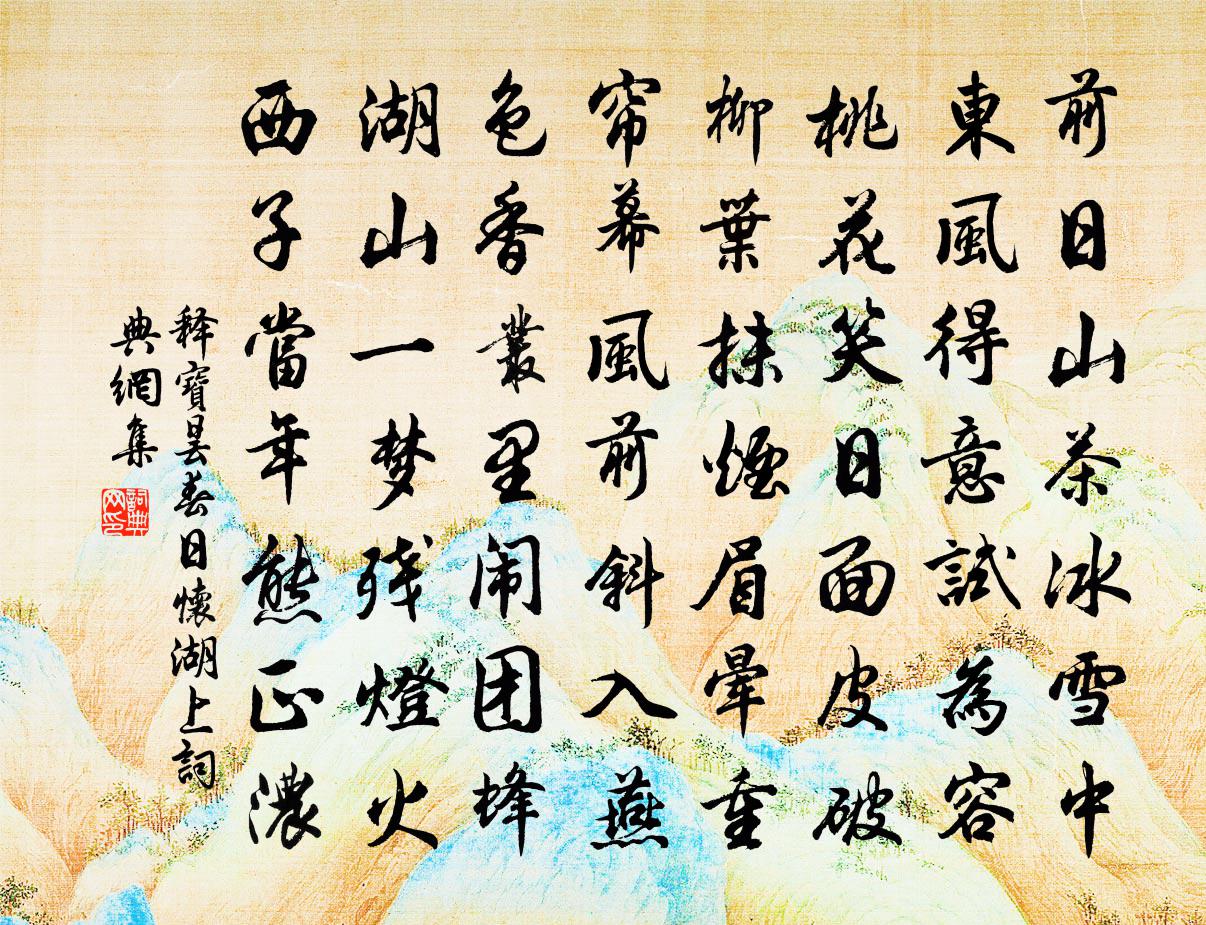 前日山茶冰雪中
東風得意試為容
桃花笑日面皮破
柳葉抹煙眉暈重
帘幕風前斜入燕
色香叢里闹团蜂
湖山一梦残燈火
西子當年態正濃
释寶昙春日懷湖上詞
典網集
詞典
网印